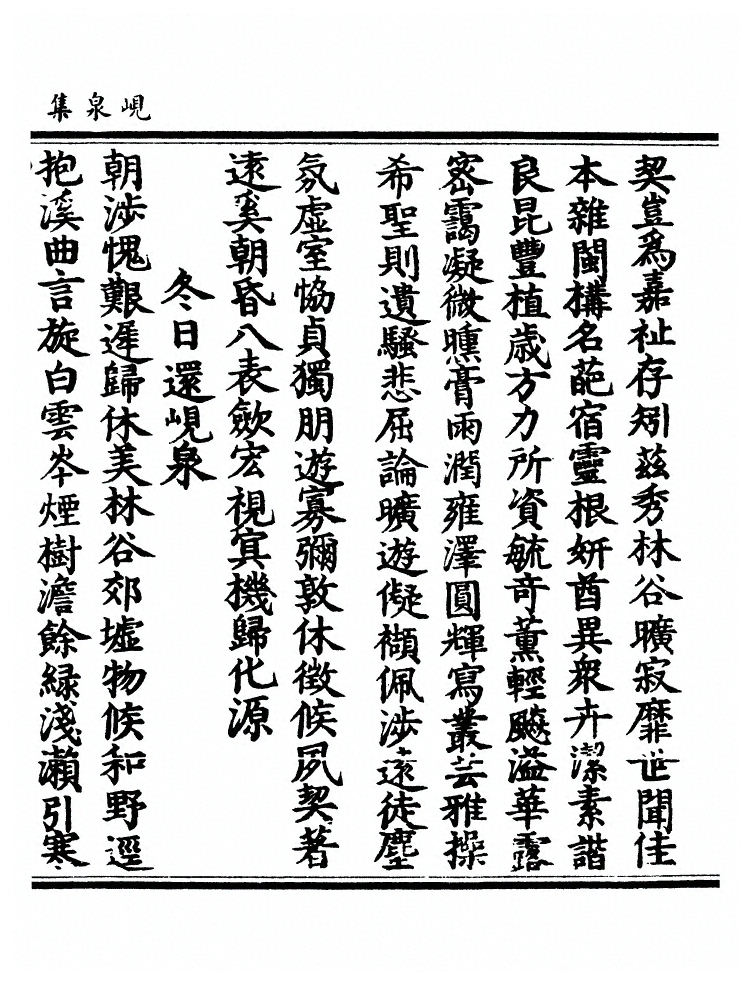 峴泉集
契豈為嘉祉存矧茲秀林谷曠寂靡世聞佳
本雜閩搆名葩宿靈根妍酋異衆卉潔素諧
良昆豐植歳方力所資毓竒薰輕颷溢華露
宻靄凝微曛膏雨潤雍澤圓輝寫叢芸雅操
希聖則遺騷悲屈論曠遊儗纈佩渉逺徒塵
氛虛室恊貞獨朋遊寡彌敦休徵候夙契著
逺奚朝昏八表歛宏視寘機歸化源
冬日還峴泉
朝渉愧艱遲歸休美林谷郊墟物候和野逕
抱溪曲言旋白雲岑煙樹澹餘緑淺瀬引寒